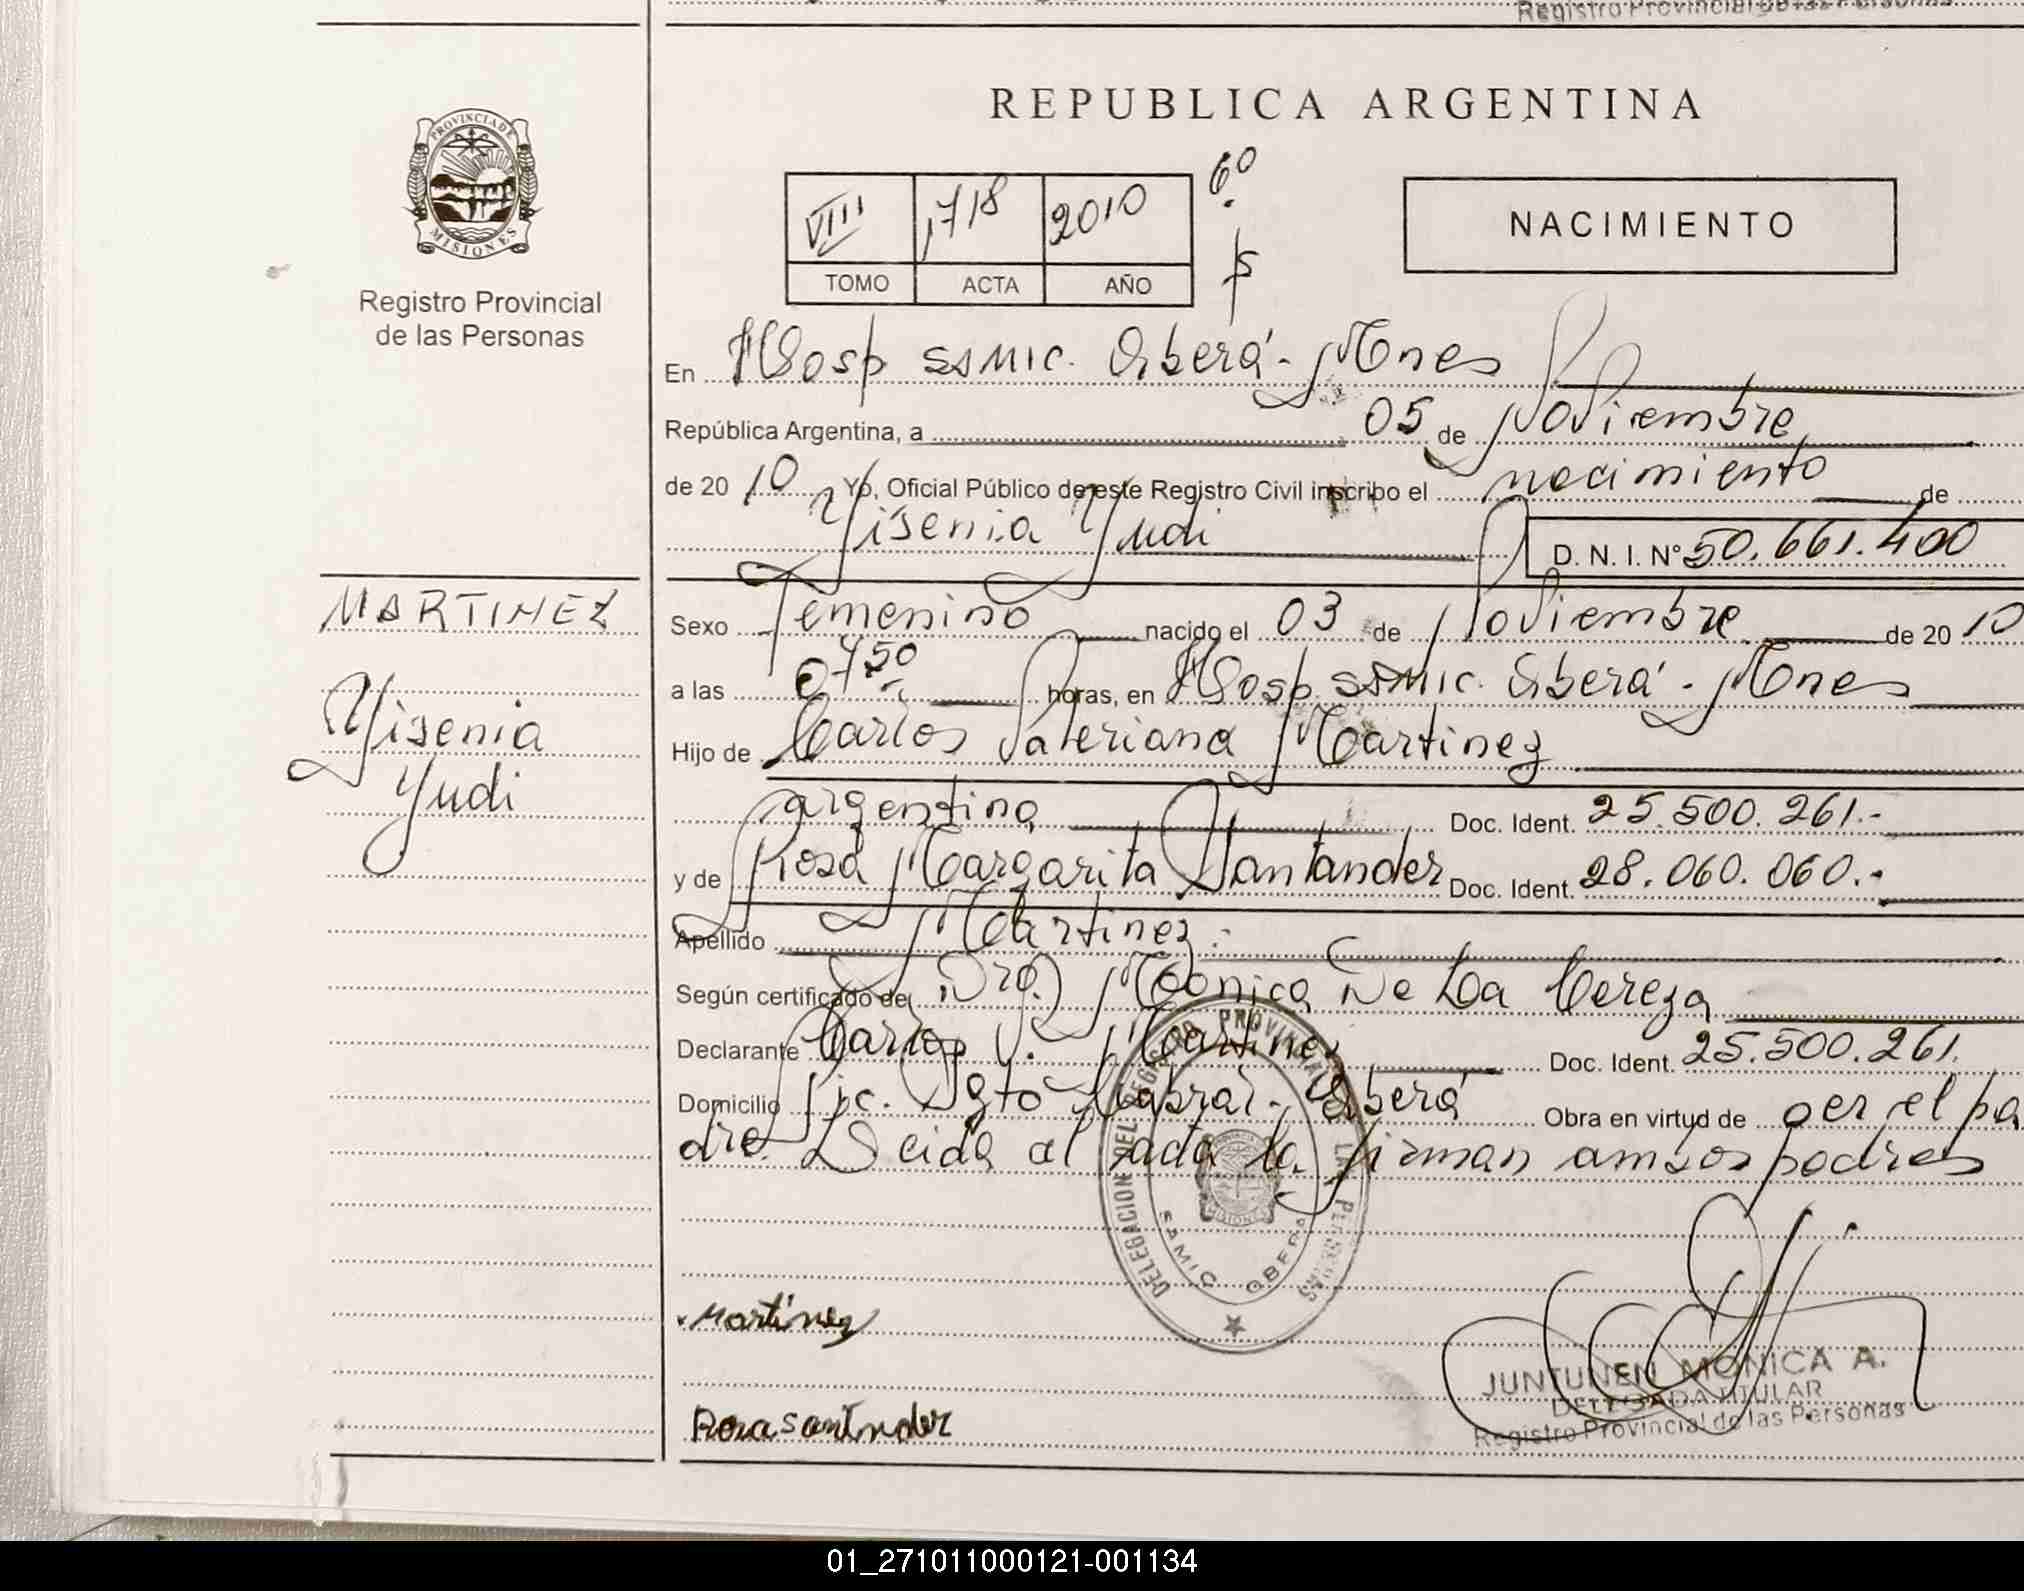 Registro Provincial de las Personas
REPUBLICA ARGENTINA
PROVINCIA DE
MISIONES
Registro Provincial
de las Personas
VIII 1718 2010
TOMO ACTA AÑO
6º
NACIMIENTO
En Hosp SSMIC. Oberá - Mnes
República Argentina, a 05 de Noviembre
de 20 10 Yo, Oficial Público de este Registro Civil inscribo el nacimiento de
Yisenia Yudi
D. N. I. Nº 50.661.400
MARTINEZ
Yisenia
Yudi
Sexo Femenino nacido el 03 de Noviembre de 20 10
a las 0750 horas, en Hosp. SSMIC. Oberá - Mnes
Hijo de Carlos Valeriano Martinez
argentino Doc. Ident. 25.500.261.-
y de Rosa Margarita Santander Doc. Ident. 28.060.060.-
Apellido Martinez.-
Según certificado de Dra. Monica De La Cereza
Declarante Carlos V. Martinez Doc. Ident. 25.500.261.
Domicilio Pje. Sgto Cabral - Oberá Obra en virtud de ser el pa
dre. Leida el acta la firman ambos padres
DELEGACION DEL REGISTRO PROVINCIAL DE LAS PERSONAS
SAMIC OBERA
MISIONES
Martínez
Rosa Santnder
JUNTUNEN MONICA A.
DELEGADA TITULAR
Registro Provincial de las Personas
01_271011000121-001134